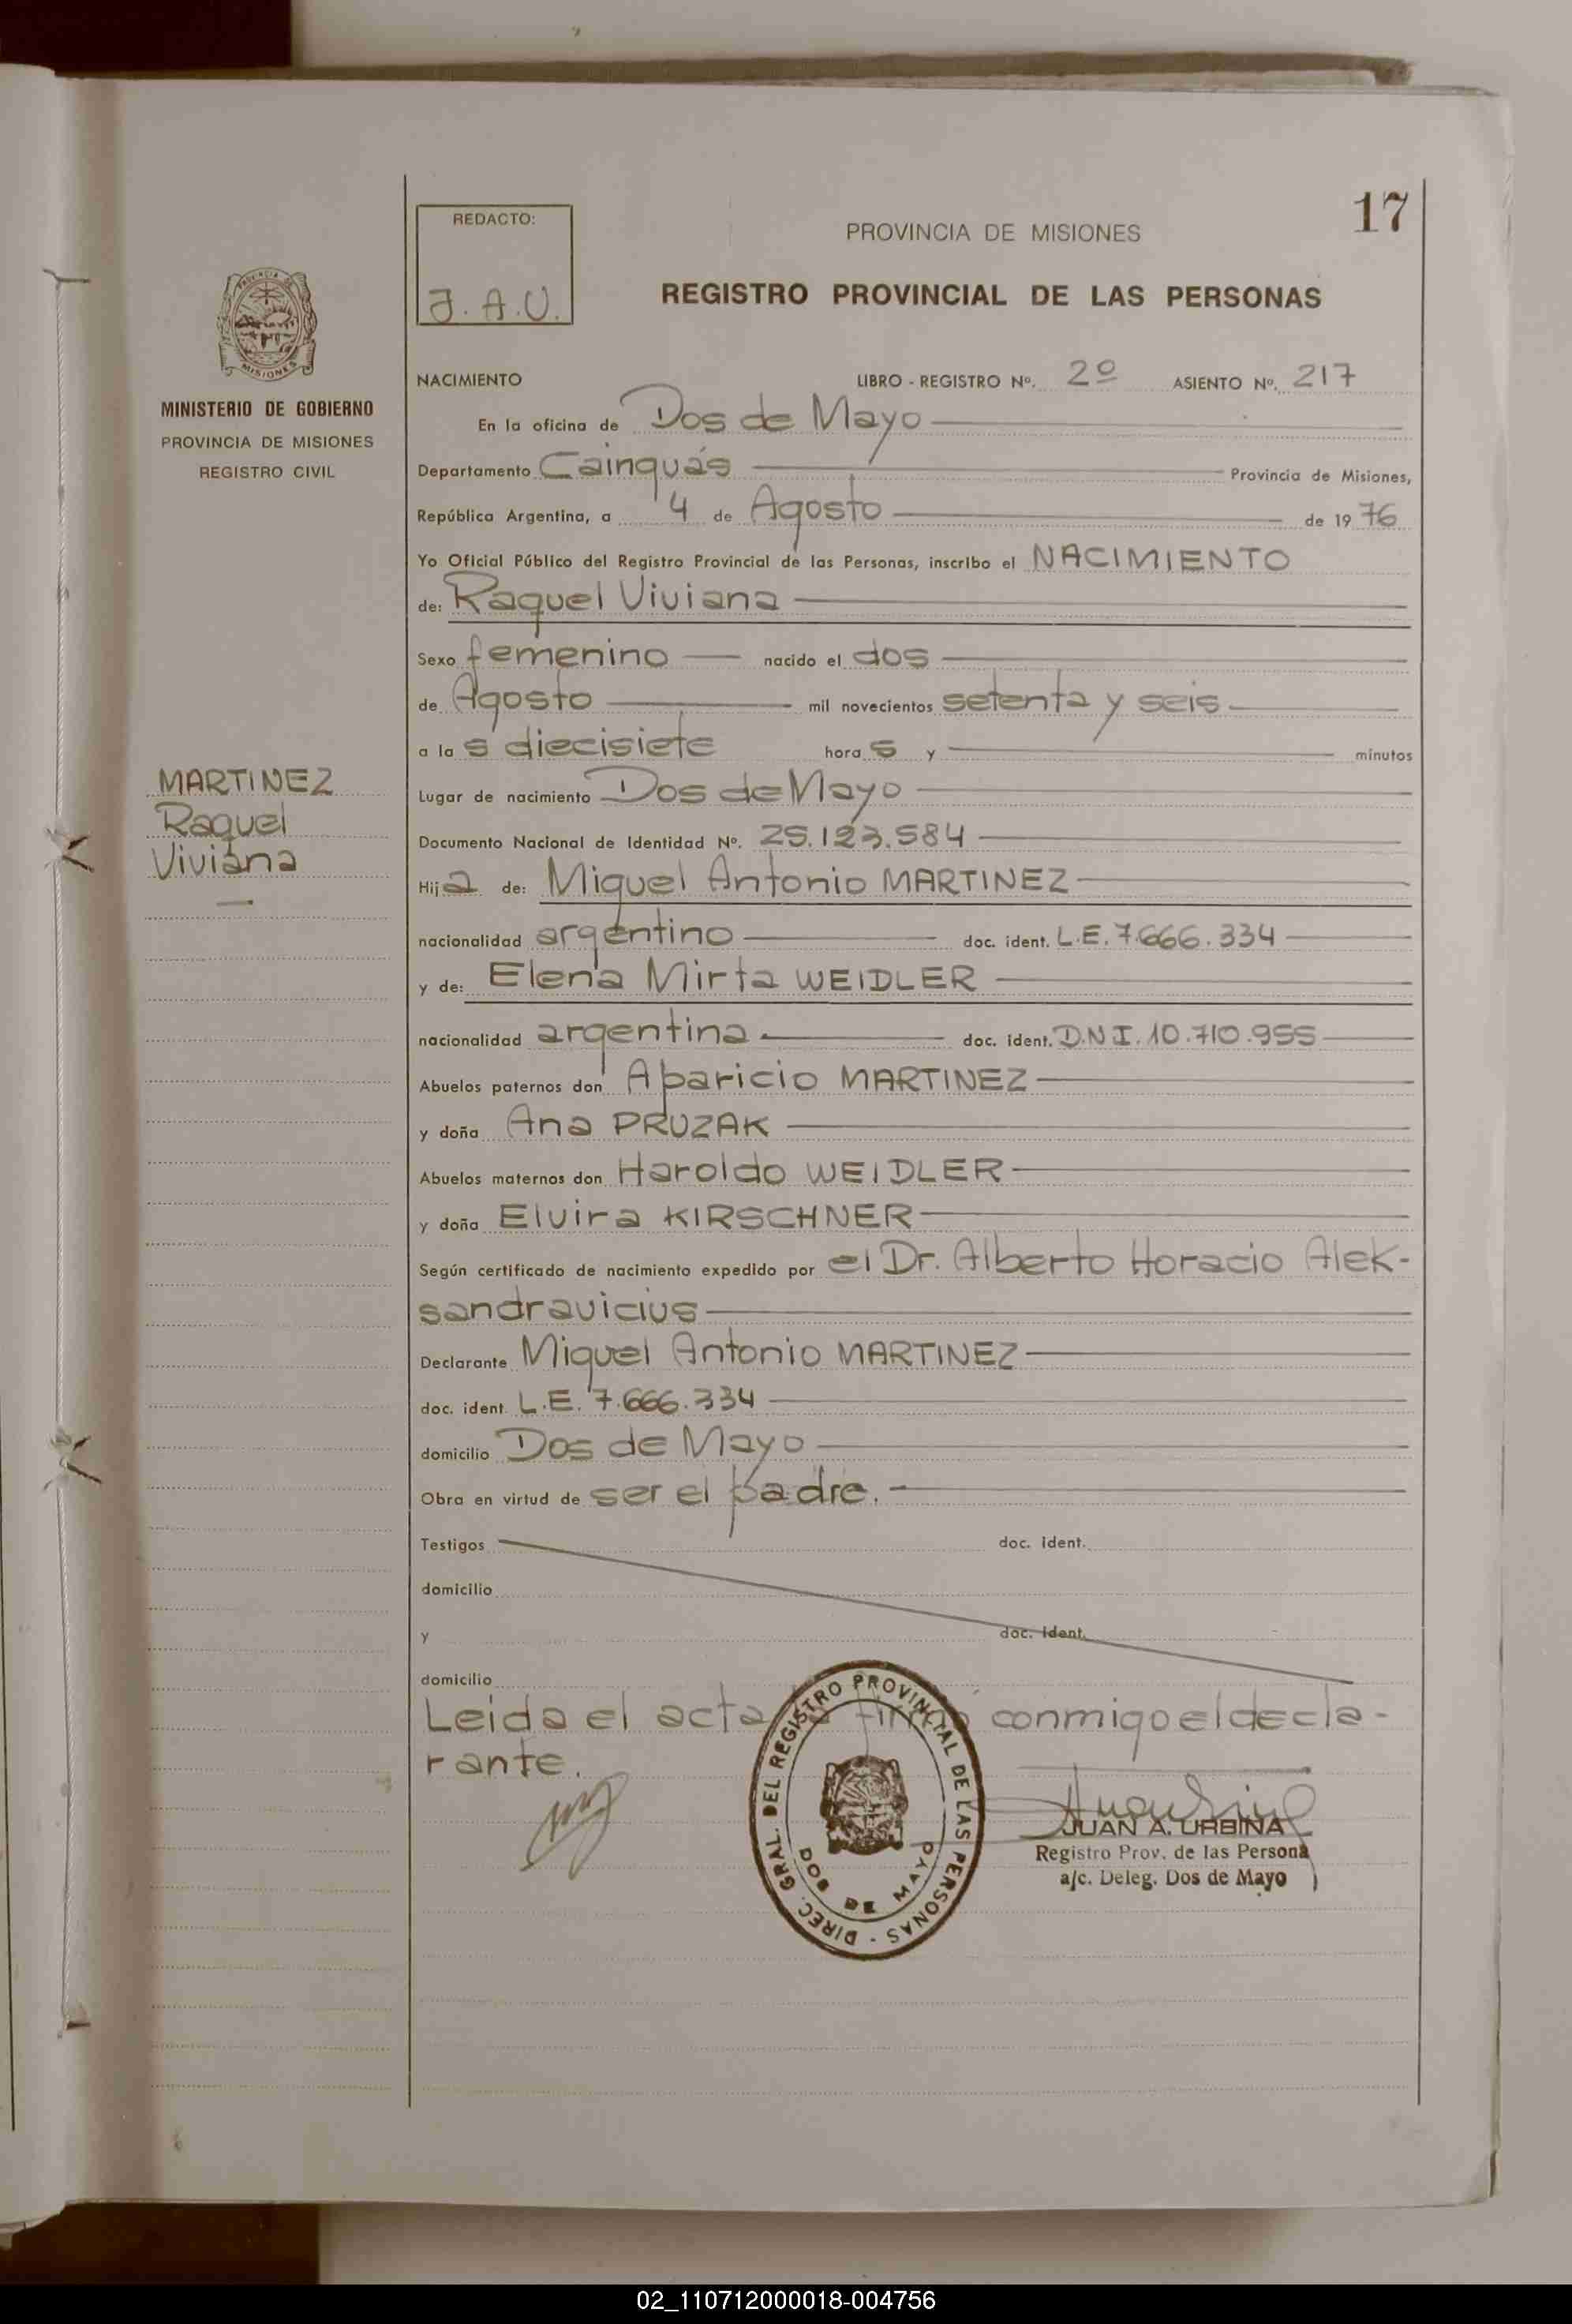 17
REDACTO:
J. A. U.
PROVINCIA DE MISIONES
REGISTRO PROVINCIAL DE LAS PERSONAS
PROVINCIA DE
MISIONES
MINISTERIO DE GOBIERNO
PROVINCIA DE MISIONES
REGISTRO CIVIL
MARTINEZ
Raquel
Viviana
NACIMIENTO LIBRO - REGISTRO Nº. 2º ASIENTO Nº. 217
En la oficina de Dos de Mayo
Departamento Cainguás Provincia de Misiones,
República Argentina, a 4 de Agosto de 1976
Yo Oficial Público del Registro Provincial de las Personas, inscribo el NACIMIENTO
de: Raquel Viviana
Sexo femenino nacido el dos
de Agosto mil novecientos setenta y seis
a la s diecisiete hora s y minutos
Lugar de nacimiento Dos de Mayo
Documento Nacional de Identidad Nº. 25.123.584
Hija de: Miguel Antonio MARTINEZ
nacionalidad argentino doc. ident. L.E. 7.666.334
y de: Elena Mirta WEIDLER
nacionalidad argentina. doc. ident. D.N.I. 10.710.955
Abuelos paternos don Aparicio MARTINEZ
y doña Ana PRUZAK
Abuelos maternos don Haroldo WEIDLER
y doña Elvira KIRSCHNER
Según certificado de nacimiento expedido por el Dr. Alberto Horacio Alek-
sandravicius
Declarante Miguel Antonio MARTINEZ
doc. ident. L.E. 7.666.334
domicilio Dos de Mayo
Obra en virtud de ser el padre.
Testigos doc. ident.
domicilio
y doc. ident.
domicilio
Leida el acta conmigo el decla-
rante.
DIREC. GRAL. DEL REGISTRO PROVINCIAL DE LAS PERSONAS -
DOS DE MAYO
JUAN A. URBINA
Registro Prov. de las Persona
a/c. Deleg. Dos de Mayo
02_110712000018-004756